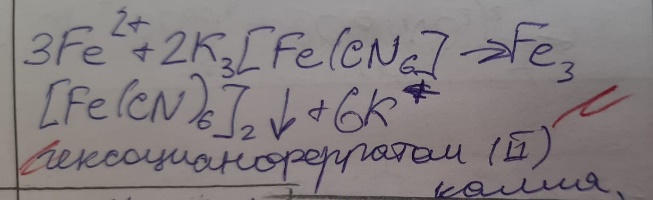 3Fe²⁺ + 2K₃[Fe(CN₆] → Fe₃
[Fe(CN)₆]₂ ↓ + 6K⁺
гексоцианоферратом (II)
калия,